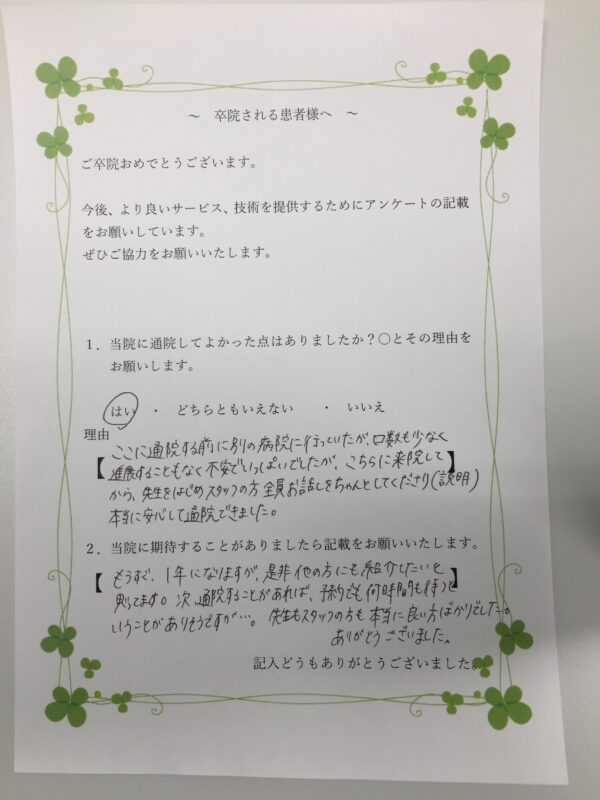 ～ 卒院される患者様へ ～
ご卒院おめでとうございます。
今後、より良いサービス、技術を提供するためにアンケートの記載
をお願いしています。
ぜひご協力をお願いいたします。
１．当院に通院してよかった点はありましたか？○とその理由を
お願いします。
はい ・ どちらともいえない ・ いいえ
理由
ここに通院する前に別の病院に行っていたが、口数も少なく
【進展することもなく不安でいっぱいでしたが、こちらに来院して】
から、先生をはじめスタッフの方全員お話しをちゃんとしてくださり(説明)
本当に安心して通院できました。
２．当院に期待することがありましたら記載をお願いいたします。
【もうすぐ、1年になりますが、是非他の方にも紹介したいと】
思ってます。次、通院することがあれば、予約でも何時間も待つと
いうことがありそうですが…。先生もスタッフの方も本当に良い方ばかりでした。
ありがとうございました。
記入どうもありがとうございました。